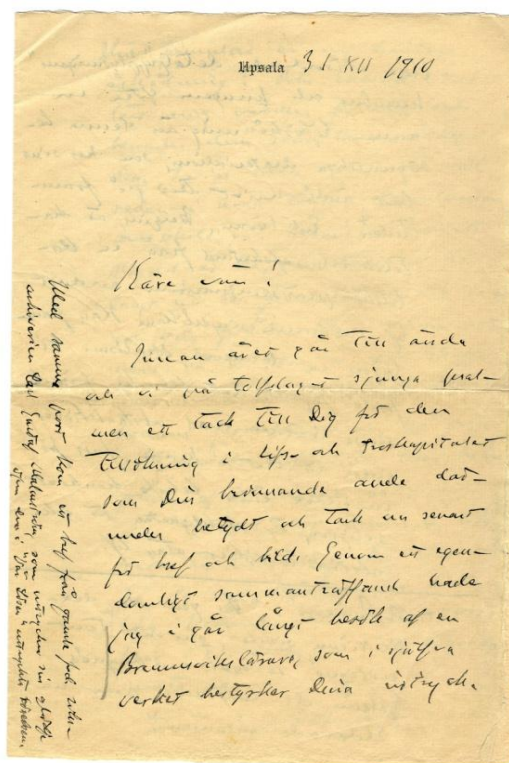 Upsala 31 XII 1910
Käre vän!
Innan året går till ända
och vi på tolfslaget sjunga psal-
men ett tack till Dig för den
tillökning i lifs- och troskapitalet
som Din brinnande ande där-
under betydt och tack nu senast
för bref och bild. Genom ett egen-
domligt sammanträffande hade
jag i går långt besök af en
Brunnsvikslärare, som i själfva
verket bestyrker Dina uttryck.
Med samma post kom ett bref från gamle
arkivarien Carl Gustaf Malmström som uttrycker sin glädje